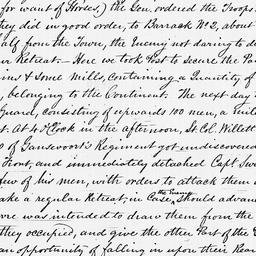 for want of Horses) the Gen. ordered the Troops
they did in good order, to Barrack No 2, about
half from the Town, the Enemy not daring to
Retreat.— Here we took Post to secure the
& some Mills, containing a Quantity of
, belonging to the Continent. The next day
Guard, consisting of upwards 100 men, a
At 4 o'Clock in the afternoon, Lt Col. Willett
of Gansevoort's Regiment got undiscovered
Front, and immediately detached Capt
few of his men, with orders to attack them
make a regular Retreat, in Case, the Enemy should
was intended to draw them from the
they occupied, and give the other Part of the
an opportunity of falling in upon their Rear